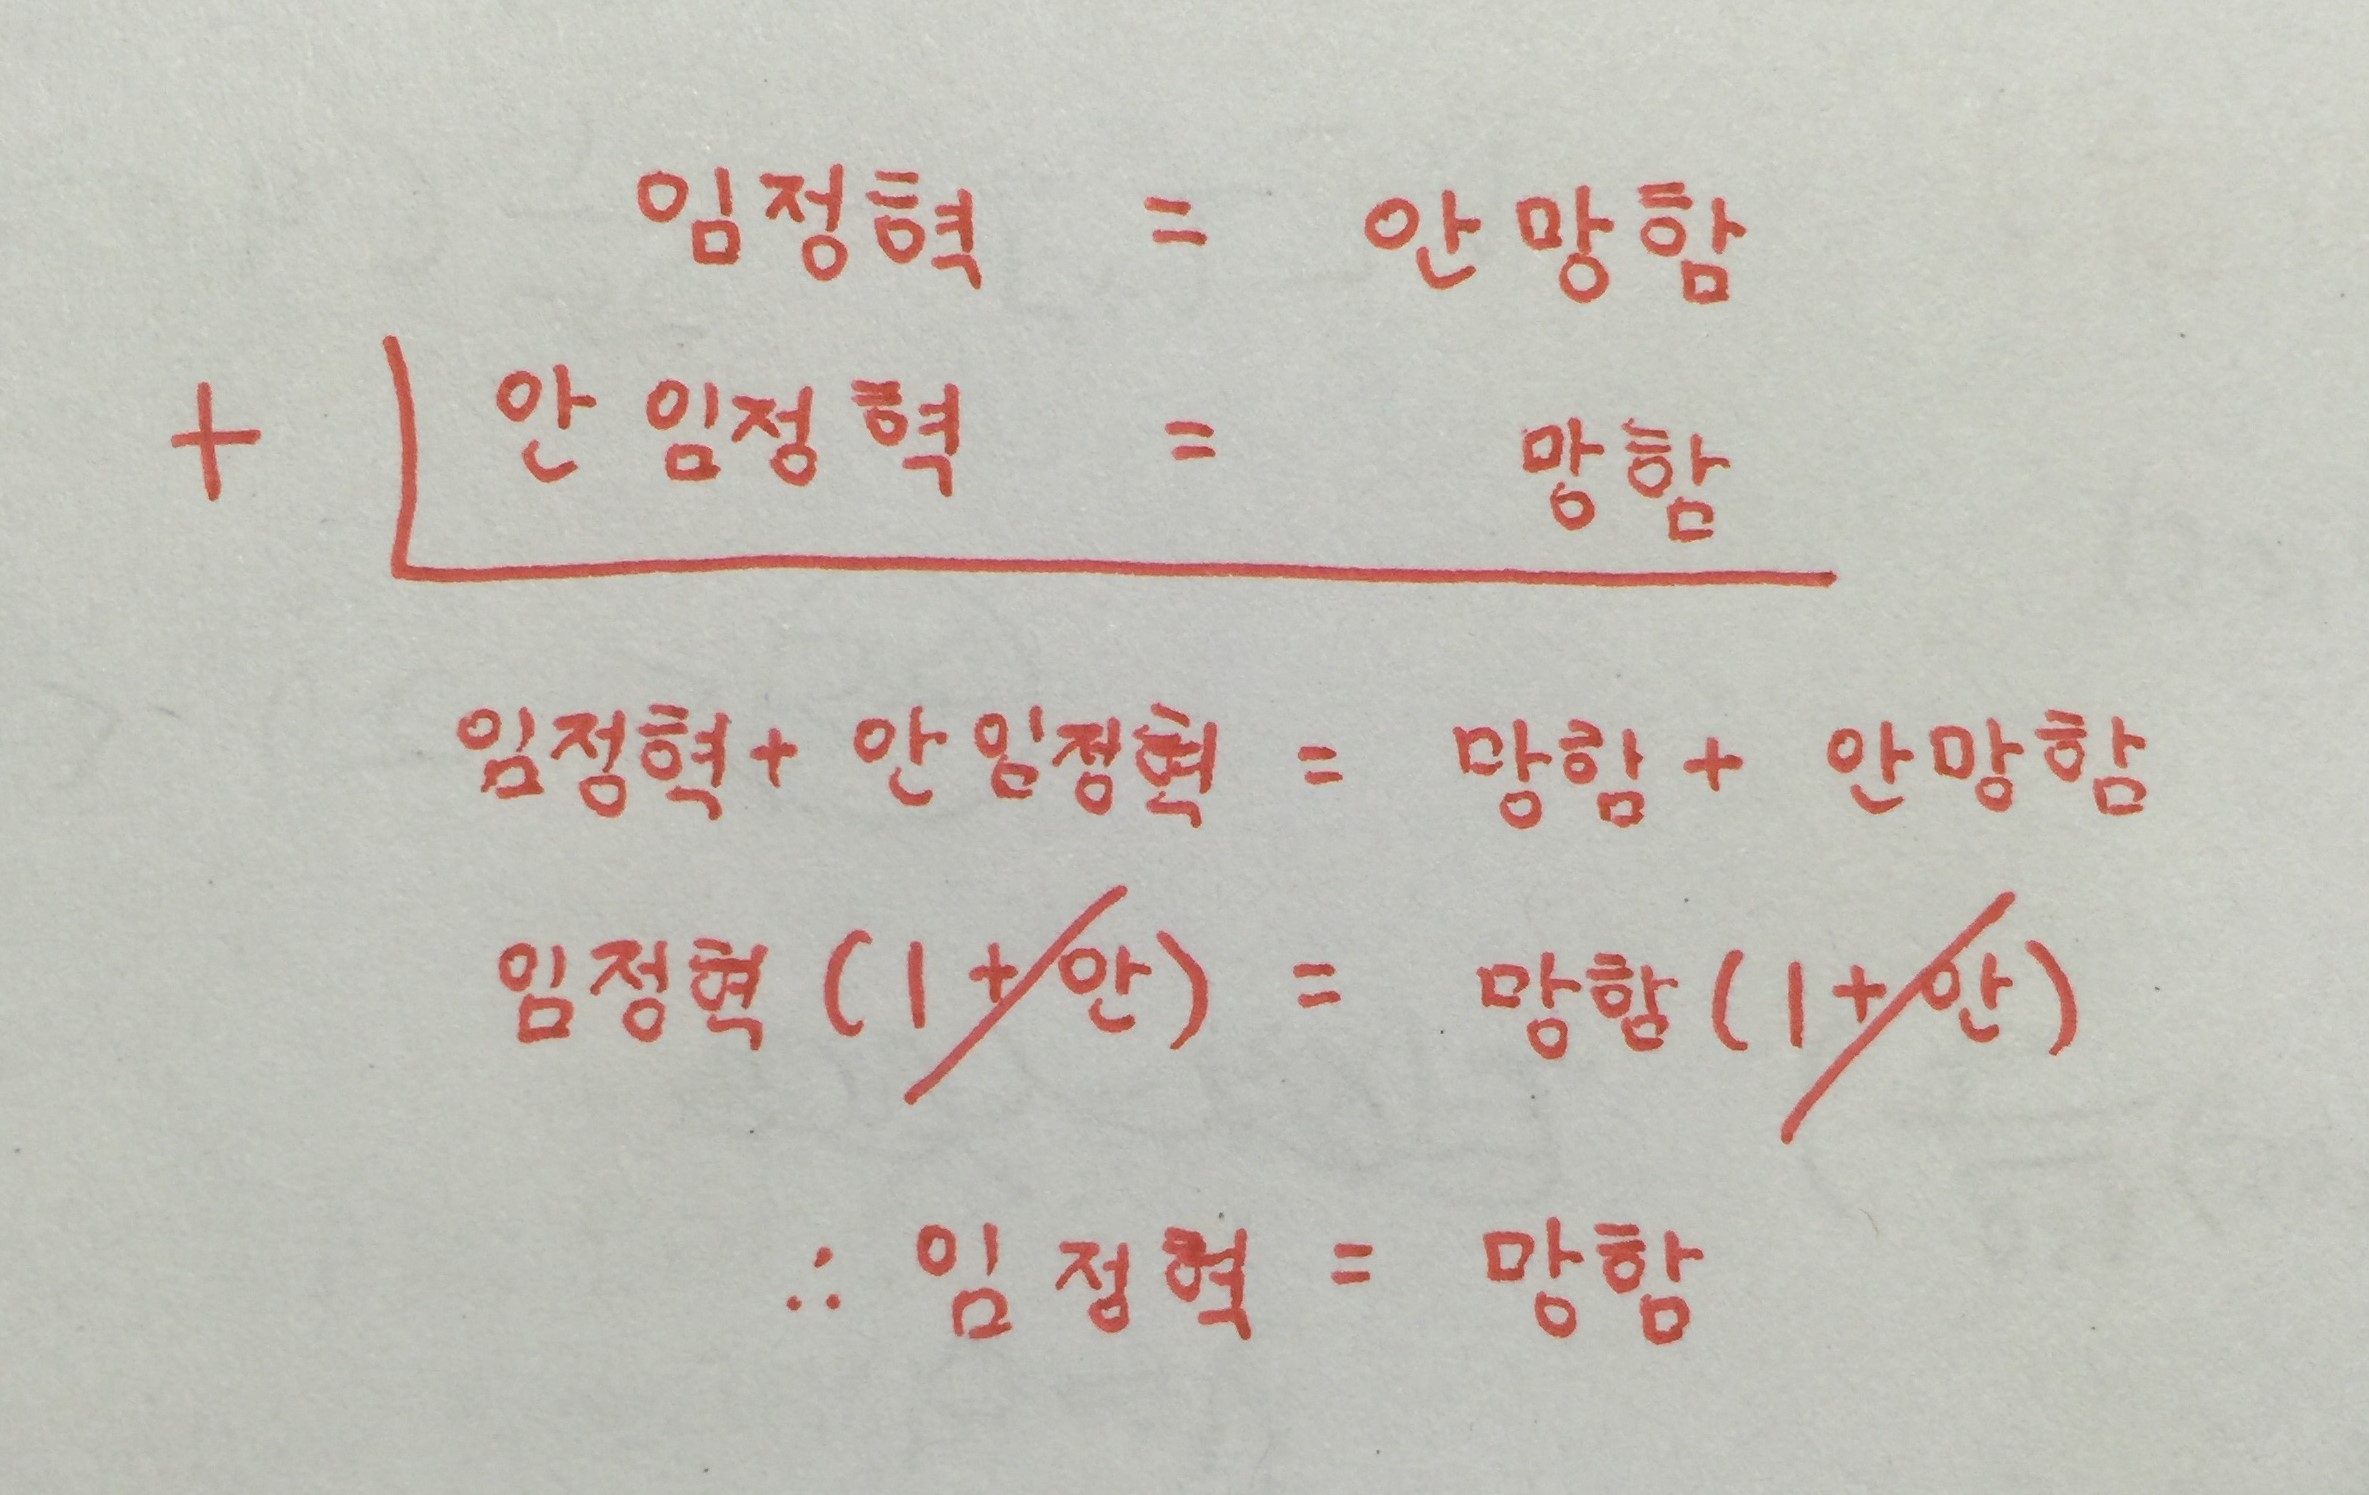 임정혁 = 안망함
+ 안 임정혁 = 망함
임정혁 + 안 임정혁 = 망함 + 안망함
임정혁 (1 + 안) = 망함 (1 + 안)
∴ 임정혁 = 망함